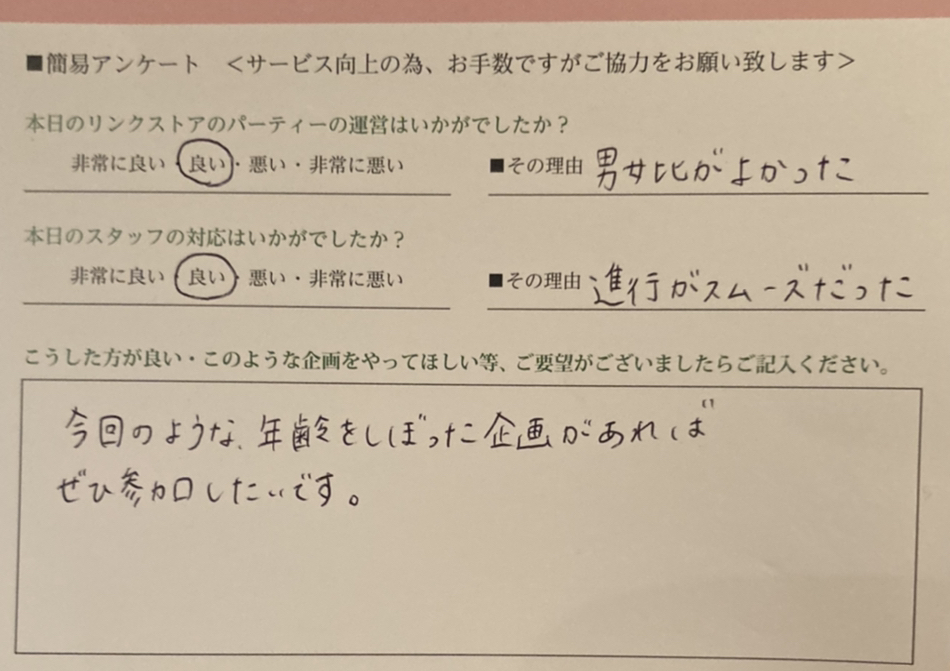 ■簡易アンケート <サービス向上の為、お手数ですがご協力をお願い致します>
本日のリンクストアのパーティーの運営はいかがでしたか?
非常に良い・良い・悪い・非常に悪い ■その理由 男女比がよかった
本日のスタッフの対応はいかがでしたか?
非常に良い・良い・悪い・非常に悪い ■その理由 進行がスムーズだった
こうした方が良い・このような企画をやってほしい等、ご要望がございましたらご記入ください。
今回のような、年齢をしぼった企画があれば
ぜひ参加したいです。